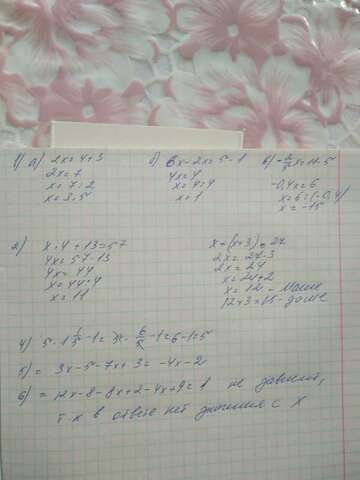 1) а) 2x = 4+3
2x = 7
x = 7:2
x = 3,5
б) 6x - 2x = 5 - 1
4x = 4
x = 4:4
x = 1
в)
-0,4x = 6
x = 6:(-0,4)
x = -15
2) x · 4 + 13 = 57
4x = 57-13
4x = 44
x = 44:4
x = 11
x + (x+3) = 27
2x = 27-3
2x = 24
x = 24:2
x = 12 - Маше
12+3 = 15 - Даше
4) 5 · 1 1/5 - 1 = 5 · 6/5 - 1 = 6-1=5
5) = 3x - 5 - 7x + 3 = -4x - 2
6) = 12x - 8 - 8x + 2 - 4x + 9 = не зависит,
т.к в ответе нет значения с x